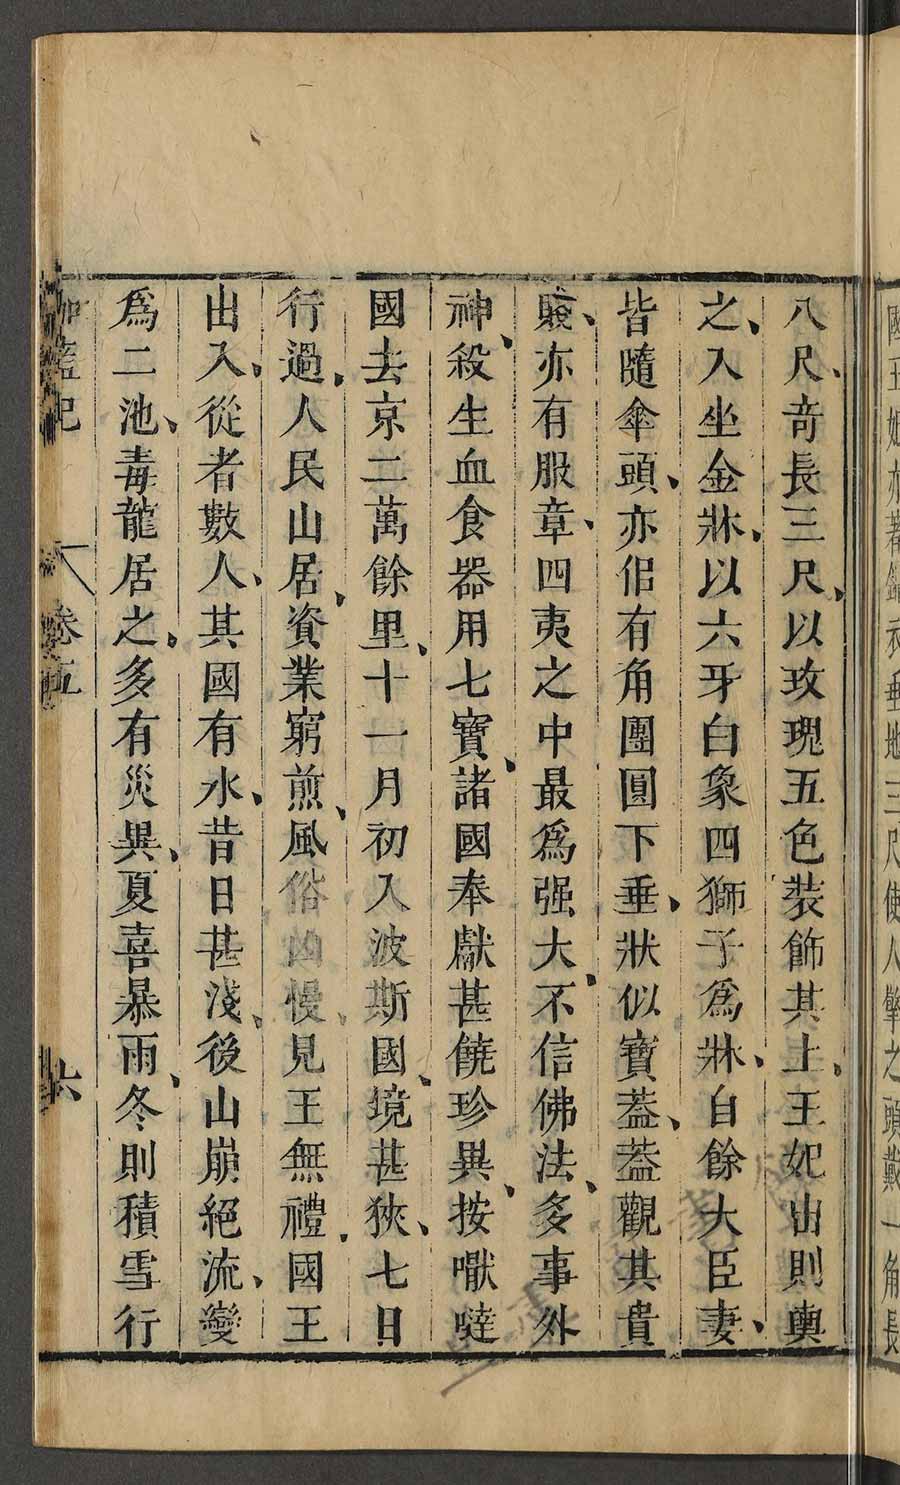 國王妃亦著錦衣垂地三尺使人擎之頭戴一角長
八尺、奇長三尺、以玫瑰五色装飾其上、王妃出則輿
之、入坐金牀、以六牙白象四獅子爲牀、自餘大臣妻、
皆隨傘頭、亦佀有角團圓下垂、狀似寶葢、葢觀其貴
賤、亦有服章、四夷之中最爲强大、不信佛法、多事外
神、殺生血食器用七寶、諸國奉獻甚饒珍異、按嚈噠
國去京二萬餘里、十一月初入波斯國、境甚狹、七日
行過、人民山居、資業窮煎、風俗凶慢、見王無禮、國王
出入、從者數人、其國有水、昔日甚淺、後山崩絕流、變
爲二池、毒龍居之、多有災異、夏喜暴雨、冬則積雪行
伽藍記 卷五 六